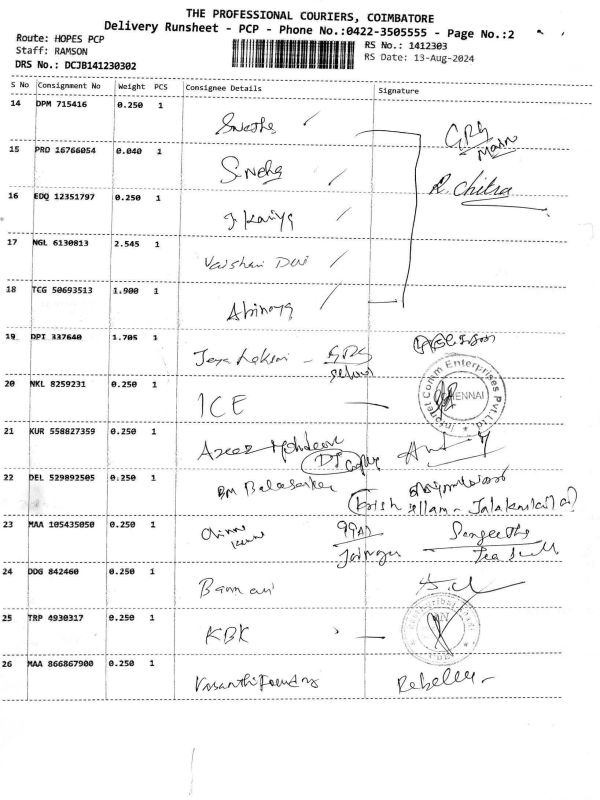 THE PROFESSIONAL COURIERS, COIMBATORE
Delivery Runsheet - PCP - Phone No.:0422-3505555 - Page No.:2
Route: HOPES PCP
RS No.: 1412303
Staff: RAMSON
RS Date: 13-Aug-2024
DRS No.: DCJB141230302
S No Consignment No Weight PCS Consignee Details Signature
14 DPM 715416 0.250 1
Swetha
GRG
Main
15 PRO 16766054 0.040 1
Sneha
R. Chitra
16 EDQ 12351797 0.250 1
17 NGL 6130813 2.545 1
Vaishnavi Devi
18 TCG 50693513 1.900 1
Abinaya
19 DPI 337640 1.705 1
GRG
School
20 NKL 8259231 0.250 1
ICE
Infonet Comm Enterprises Pvt.Ltd
CHENNAI
21 KUR 558827359 0.250 1
22 DEL 529892505 0.250 1
BM Balasankar
23 MAA 105435050 0.250 1
Chinna
Sangeetha
24 DDG 842460 0.250 1
Bannari
25 TRP 4930317 0.250 1
KBK
26 MAA 866867900 0.250 1
Vasanthi Foundry